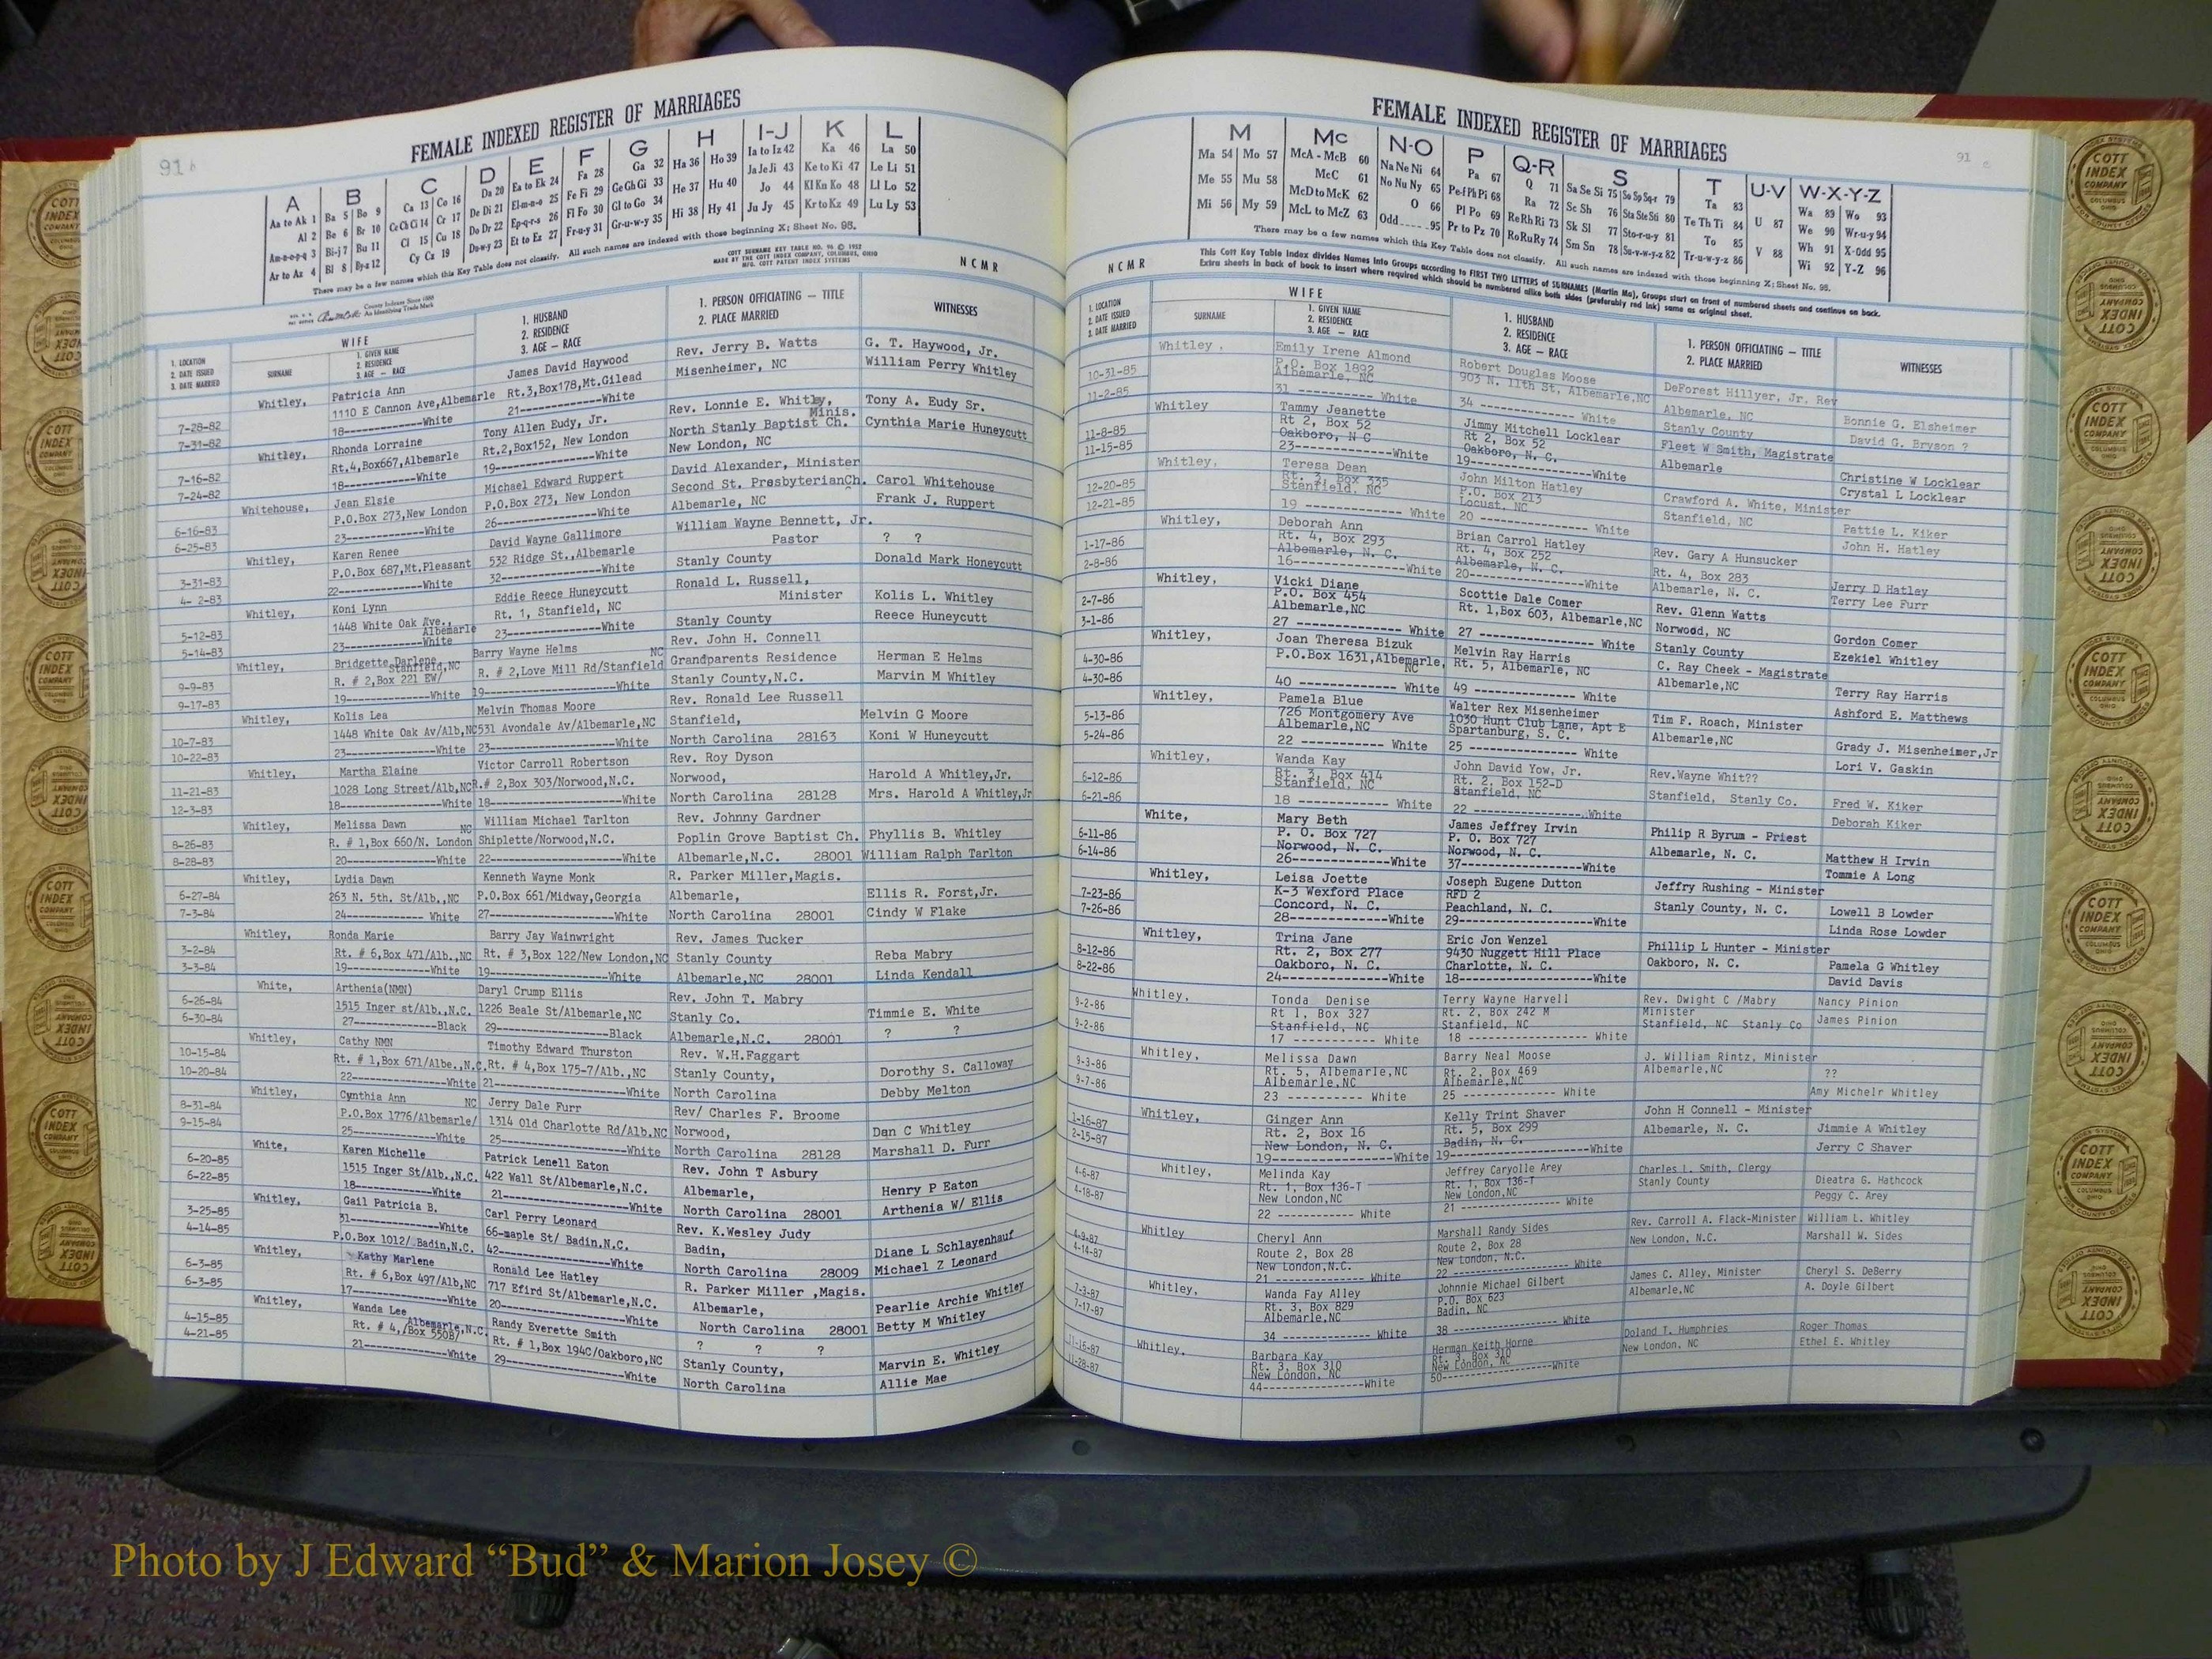 91 b
FEMALE INDEXED REGISTER OF MARRIAGES
A B C D E F G H I-J K L
Aa to Ak 1 Ba 5 Bo 9 Ca 13 Co 16 Da 20 Ea to Ek 24 Fa 28 Ga 32 Ha 36 Ho 39 Ia to Iz 42 Ka 46 La 50
Al 2 Be 6 Br 10 Ce Ch Ci 14 Cr 17 De Di 21 El-m-n-o 25 Fe Fi 29 Ge Gh Gi 33 He 37 Hu 40 Ja Je Ji 43 Ke to Ki 47 Le Li 51
Am-n-o-p-q 3 Bi-j 7 Bu 11 Cl 15 Cu 18 Do Dr 22 Ep-q-r-s 26 Fl Fo 30 Gl to Go 34 Hi 38 Hy 41 Jo 44 Kl Kn Ko 48 Ll Lo 52
Ar to Az 4 Bl 8 By-z 12 Cy Cz 19 Du-w-y 23 Et to Ez 27 Fr-u-y 31 Gr-u-w-y 35 Ju Jy 45 Kr to Kz 49 Lu Ly 53
There may be a few names which this Key Table does not classify. All such names are indexed with those beginning X; Sheet No. 95.
COTT SURNAME KEY TABLE NO. 96 © 1952
MADE BY THE COTT INDEX COMPANY, COLUMBUS, OHIO
MFG. COTT PATENT INDEX SYSTEMS
N C M R
County Indexes Since 1888
An Identifying Trade Mark
1. LOCATION
2. DATE ISSUED
3. DATE MARRIED
WIFE
SURNAME
1. GIVEN NAME
2. RESIDENCE
3. AGE — RACE
1. HUSBAND
2. RESIDENCE
3. AGE — RACE
1. PERSON OFFICIATING — TITLE
2. PLACE MARRIED
WITNESSES
7-28-82
7-31-82
Whitley,
Patricia Ann
1110 E Cannon Ave,Albemarle
18-------------White
James David Haywood
Rt.3,Box178,Mt.Gilead
21------------White
Rev. Jerry B. Watts
Misenheimer, NC
G. T. Haywood, Jr.
William Perry Whitley
7-16-82
7-24-82
Whitley,
Rhonda Lorraine
Rt.4,Box667,Albemarle
18-------------White
Tony Allen Eudy, Jr.
Rt.2,Box152, New London
19--------------White
Rev. Lonnie E. Whitly,
Minis.
North Stanly Baptist Ch.
New London, NC
Tony A. Eudy Sr.
Cynthia Marie Huneycutt
6-16-83
6-25-83
Whitehouse,
Jean Elsie
P.O.Box 273,New London
23------------White
Michael Edward Ruppert
P.O.Box 273, New London
26--------------White
David Alexander, Minister
Second St. PresbyterianCh.
Albemarle, NC
Carol Whitehouse
Frank J. Ruppert
3-31-83
4- 2-83
Whitley,
Karen Renee
P.O.Box 687,Mt.Pleasant
22------------White
David Wayne Gallimore
532 Ridge St.,Albemarle
32--------------White
William Wayne Bennett, Jr.
Pastor
Stanly County
? ?
Donald Mark Honeycutt
5-12-83
5-14-83
Whitley,
Koni Lynn
1448 White Oak Ave.,
Albemarle
23------------White
Eddie Reece Huneycutt
Rt. 1, Stanfield, NC
23--------------White
Ronald L. Russell,
Minister
Stanly County
Kolis L. Whitley
Reece Huneycutt
9-9-83
9-17-83
Whitley,
Bridgette Darlene
Stanfield,NC
R. # 2,Box 221 EW/
19--------------White
Barry Wayne Helms NC
R. # 2,Love Mill Rd/Stanfield
19---------------------White
Rev. John H. Connell
Grandparents Residence
Stanly County,N.C.
Herman E Helms
Marvin M Whitley
10-7-83
10-22-83
Whitley,
Kolis Lea
1448 White Oak Av/Alb,NC
23--------------White
Melvin Thomas Moore
531 Avondale Av/Albemarle,NC
23--------------------White
Rev. Ronald Lee Russell
Stanfield,
North Carolina 28163
Melvin G Moore
Koni W Huneycutt
11-21-83
12-3-83
Whitley,
Martha Elaine
1028 Long Street/Alb,NC
18----------------White
Victor Carroll Robertson
R.# 2,Box 303/Norwood,N.C.
18----------------------White
Rev. Roy Dyson
Norwood,
North Carolina 28128
Harold A Whitley,Jr.
Mrs. Harold A Whitley,Jr
8-26-83
8-28-83
Whitley,
Melissa Dawn NC
R. # 1,Box 660/N. London
20--------------White
William Michael Tarlton
Shiplette/Norwood,N.C.
22----------------------White
Rev. Johnny Gardner
Poplin Grove Baptist Ch.
Albemarle,N.C. 28001
Phyllis B. Whitley
William Ralph Tarlton
6-27-84
7-3-84
Whitley,
Lydia Dawn
263 N. 5th. St/Alb.,NC
24------------ White
Kenneth Wayne Monk
P.O.Box 661/Midway,Georgia
27------------------White
R. Parker Miller,Magis.
Albemarle,
North Carolina 28001
Ellis R. Forst,Jr.
Cindy W Flake
3-2-84
3-3-84
Whitley,
Ronda Marie
Rt. # 6,Box 471/Alb.,NC
19--------------White
Barry Jay Wainwright
Rt. # 3,Box 122/New London,NC
19------------------White
Rev. James Tucker
Stanly County
Albemarle,NC 28001
Reba Mabry
Linda Kendall
6-26-84
6-30-84
White,
Arthenia(NMN)
1515 Inger st/Alb.,N.C.
27--------------Black
Daryl Crump Ellis
1226 Beale St/Albemarle,NC
29------------------Black
Rev. John T. Mabry
Stanly Co.
Albemarle,N.C. 28001
Timmie E. White
? ?
10-15-84
10-20-84
Whitley,
Cathy NMN
Rt. # 1,Box 671/Albe.,N.C.
22--------------White
Timothy Edward Thurston
Rt. # 4,Box 175-7/Alb.,NC
21--------------------White
Rev. W.H.Faggart
Stanly County,
North Carolina
Dorothy S. Calloway
Debby Melton
8-31-84
9-15-84
Whitley,
Cynthia Ann NC
P.O.Box 1776/Albemarle/
25--------------White
Jerry Dale Furr
1314 Old Charlotte Rd/Alb.NC
25--------------------White
Rev/ Charles F. Broome
Norwood,
North Carolina 28128
Dan C Whitley
Marshall D. Furr
6-20-85
6-22-85
White,
Karen Michelle
1515 Inger St/Alb.,N.C.
18-------------White
Patrick Lenell Eaton
422 Wall St/Albemarle,N.C.
21--------------------White
Rev. John T Asbury
Albemarle,
North Carolina 28001
Henry P Eaton
Arthenia W/ Ellis
3-25-85
4-14-85
Whitley,
Gail Patricia B.
31--------------White
P.O.Box 1012/ Badin,N.C.
Carl Perry Leonard
66-maple St/ Badin,N.C.
42------------------White
Rev. K.Wesley Judy
Badin,
North Carolina 28009
Diane L Schlayenhauf
Michael Z Leonard
6-3-85
6-3-85
Whitley,
Kathy Marlene
Rt. # 6,Box 497/Alb,NC
17--------------White
Ronald Lee Hatley
717 Efird St/Albemarle,N.C.
20--------------------White
R. Parker Miller ,Magis.
Albemarle,
North Carolina 28001
Pearlie Archie Whitley
Betty M Whitley
4-15-85
4-21-85
Whitley,
Wanda Lee
Albemarle,N.C.
Rt. # 4,/Box 550B/
21--------------White
Randy Everette Smith
Rt. # 1,Box 194C/Oakboro,NC
29--------------------White
? ? ?
Stanly County,
North Carolina
Marvin E. Whitley
Allie Mae
FEMALE INDEXED REGISTER OF MARRIAGES
91 c
M Mc N-O P Q-R S T U-V W-X-Y-Z
Ma 54 Mo 57 McA - McB 60 Na Ne Ni 64 Pa 67 Q 71 Sa Se Si 75 So Sp Sq-r 79 Ta 83 U 87 Wa 89 Wo 93
Me 55 Mu 58 McC 61 No Nu Ny 65 Pe-f Ph Pi 68 Ra 72 Sc Sh 76 Sta Ste Sti 80 Te Th Ti 84 V 88 We 90 Wr-u-y 94
Mi 56 My 59 McD to McK 62 O 66 Pl Po 69 Re Rh Ri 73 Sk Sl 77 Sto-r-u-y 81 To 85 Wh 91 X-Odd 95
McL to McZ 63 Odd 95 Pr to Pz 70 Ro Ru Ry 74 Sm Sn 78 Su-v-w-y-z 82 Tr-u-w-y-z 86 Wi 92 Y-Z 96
There may be a few names which this Key Table does not classify. All such names are indexed with those beginning X; Sheet No. 95.
This Cott Key Table Index divides Names into Groups according to FIRST TWO LETTERS of SURNAMES (Martin Ma), Groups start on front of numbered sheets and continue on back.
Extra sheets in back of book to insert where required which should be numbered alike both sides (preferably red ink) same as original sheet.
N C M R
1. LOCATION
2. DATE ISSUED
3. DATE MARRIED
WIFE
SURNAME
1. GIVEN NAME
2. RESIDENCE
3. AGE — RACE
1. HUSBAND
2. RESIDENCE
3. AGE — RACE
1. PERSON OFFICIATING — TITLE
2. PLACE MARRIED
WITNESSES
10-31-85
11-2-85
Whitley .
Emily Irene Almond
P.O. Box 1892
Albemarle, NC
31 ----------- White
Robert Douglas Moose
903 N. 11th St, Albemarle,NC
34 ------------ White
DeForest Hillyer, Jr. Rev
Albemarle, NC
Stanly County
Bonnie G. Elsheimer
David G. Bryson ?
11-8-85
11-15-85
Whitley
Tammy Jeanette
Rt 2, Box 52
Oakboro, N C
23-------------White
Jimmy Mitchell Locklear
Rt 2, Box 52
Oakboro, N. C.
19----------------White
Fleet W Smith, Magistrate
Albemarle
Christine W Locklear
Crystal L Locklear
12-20-85
12-21-85
Whitley,
Teresa Dean
Rt. 3, Box 335
Stanfield, NC
19 ------------ White
John Milton Hatley
P.O. Box 213
Locust, NC
20 ------------- White
Crawford A. White, Minister
Stanfield, NC
Pattie L. Kiker
John H. Hatley
1-17-86
2-8-86
Whitley,
Deborah Ann
Rt. 4, Box 293
Albemarle, N. C.
16--------------White
Brian Carrol Hatley
Rt. 4, Box 252
Albemarle, N. C.
20---------------White
Rev. Gary A Hunsucker
Rt. 4, Box 283
Albemarle, N. C.
Jerry D Hatley
Terry Lee Furr
2-7-86
3-1-86
Whitley,
Vicki Diane
P.O. Box 454
Albemarle,NC
27 ------------- White
Scottie Dale Comer
Rt. 1,Box 603, Albemarle,NC
27 -------------- White
Rev. Glenn Watts
Norwood, NC
Stanly County
Gordon Comer
Ezekiel Whitley
4-30-86
4-30-86
Whitley,
Joan Theresa Bizuk
P.O.Box 1631,Albemarle,
NC
40 ------------ White
Melvin Ray Harris
Rt. 5, Albemarle, NC
49 ------------- White
C. Ray Cheek - Magistrate
Albemarle,NC
Terry Ray Harris
Ashford E. Matthews
5-13-86
5-24-86
Whitley,
Pamela Blue
726 Montgomery Ave
Albemarle,NC
22 ----------- White
Walter Rex Misenheimer
1030 Hunt Club Lane, Apt E
Spartanburg, S. C.
25 ------------- White
Tim F. Roach, Minister
Albemarle,NC
Grady J. Misenheimer,Jr
Lori V. Gaskin
6-12-86
6-21-86
Whitley,
Wanda Kay
Rt. 3, Box 414
Stanfield, NC
18 ------------ White
John David Yow, Jr.
Rt. 2, Box 152-D
Stanfield, NC
22 --------------White
Rev.Wayne Whit??
Stanfield, Stanly Co.
Fred W. Kiker
Deborah Kiker
6-11-86
6-14-86
White,
Mary Beth
P. O. Box 727
Norwood, N. C.
26-------------White
James Jeffrey Irvin
P. O. Box 727
Norwood, N. C.
37----------------White
Philip R Byrum - Priest
Albemarle, N. C.
Matthew H Irvin
Tommie A Long
7-23-86
7-26-86
Whitley,
Leisa Joette
K-3 Wexford Place
Concord, N. C.
28-------------White
Joseph Eugene Dutton
RFD 2
Peachland, N. C.
29------------------White
Jeffry Rushing - Minister
Stanly County, N. C.
Lowell B Lowder
Linda Rose Lowder
8-12-86
8-22-86
Whitley,
Trina Jane
Rt. 2, Box 277
Oakboro, N. C.
24--------------White
Eric Jon Wenzel
9430 Nuggett Hill Place
Charlotte, N. C.
18------------------White
Phillip L Hunter - Minister
Oakboro, N. C.
Pamela G Whitley
David Davis
9-2-86
9-2-86
Whitley,
Tonda Denise
Rt 1, Box 327
Stanfield, NC
17 ----------- White
Terry Wayne Harvell
Rt. 2, Box 242 M
Stanfield, NC
18 -------------- White
Rev. Dwight C /Mabry
Minister
Stanfield, NC Stanly Co
Nancy Pinion
James Pinion
9-3-86
9-7-86
Whitley,
Melissa Dawn
Rt. 5, Albemarle,NC
Albemarle,NC
23 ---------- White
Barry Neal Moose
Rt. 2, Box 469
Albemarle,NC
25 ------------- White
J. William Rintz, Minister
Albemarle,NC
??
Amy Michelr Whitley
1-16-87
2-15-87
Whitley,
Ginger Ann
Rt. 2, Box 16
New London, N. C.
19----------------White
Kelly Trint Shaver
Rt. 5, Box 299
Badin, N. C.
19------------------White
John H Connell - Minister
Albemarle, N. C.
Jimmie A Whitley
Jerry C Shaver
4-6-87
4-18-87
Whitley,
Melinda Kay
Rt. 1, Box 136-T
New London,NC
22 ------------ White
Jeffrey Caryolle Arey
Rt. 1, Box 136-T
New London,NC
21 ------------- White
Charles L. Smith, Clergy
Stanly County
Dieatra G. Hathcock
Peggy C. Arey
4-9-87
4-14-87
Whitley
Cheryl Ann
Route 2, Box 28
New London,N.C.
21 ------------ White
Marshall Randy Sides
Route 2, Box 28
New London, N.C.
22 --------------- White
Rev. Carroll A. Flack-Minister
New London, N.C.
William L. Whitley
Marshall W. Sides
7-3-87
7-17-87
Whitley,
Wanda Fay Alley
Rt. 3, Box 829
Albemarle,NC
34 ------------ White
Johnnie Michael Gilbert
P.O. Box 623
Badin, NC
38 --------------- White
James C. Alley, Minister
Albemarle,NC
Cheryl S. DeBerry
A. Doyle Gilbert
11-16-87
11-28-87
Whitley,
Barbara Kay
Rt. 3, Box 310
New London, NC
44----------------White
Herman Keith Horne
Rt. 3, Box 310
New London, NC
50----------------White
Doland T. Humphries
New London, NC
Roger Thomas
Ethel E. Whitley
COTT
INDEX
COMPANY
COLUMBUS
OHIO
Photo by J Edward “Bud” & Marion Josey ©